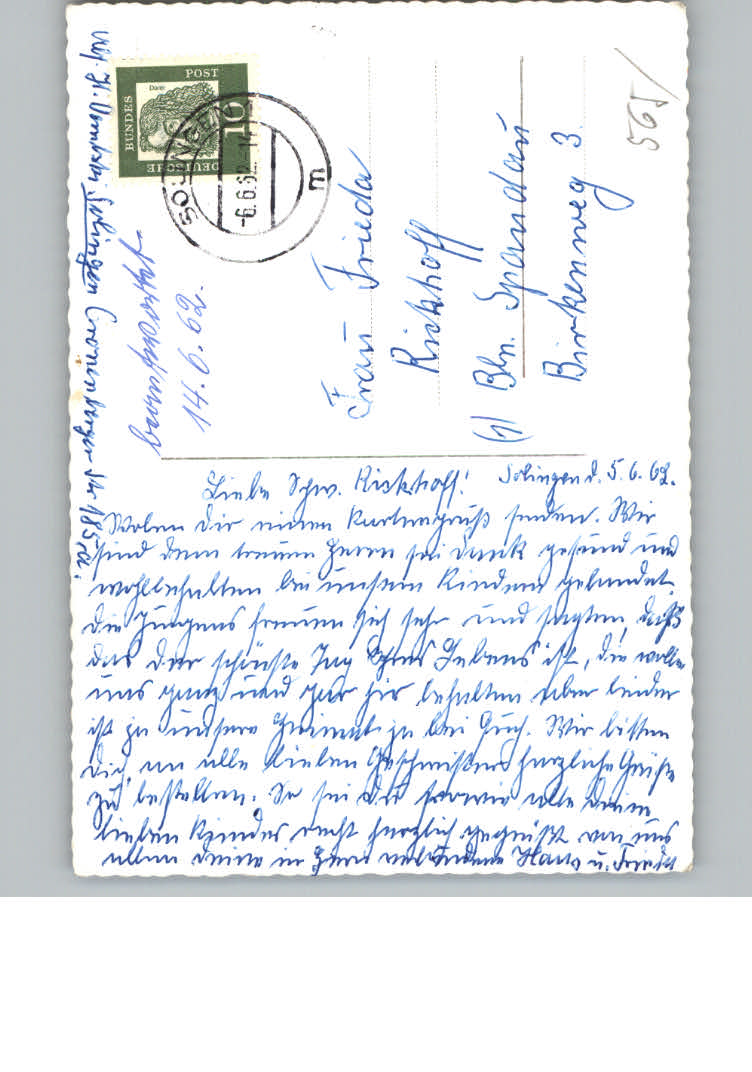 Liebe Schw. Rickhoff! Solingen d. 5.6.62.
Wolen dir einen Kartengruß senden. Wir
sind dem treuen Herrn sei Dank gesund und
wohlbehalten bei unsern Kindern gelandet.
die Jungens freuen sich sehr und sagten, daß
das der schönste Tag Ihres Lebens ist, die wollen
uns ganz und gar hir behalten aber leider
ist ja unsere Heimat ja bei Euch. Wir bitten
dich, an alle lieben Geschwistern herzliche Grüße
zu bestellen. So sei du sowie alle deine
lieben Kinder recht herzlich gegrüßt von uns
allen deine in Herrn verbundene Hans u. Frieda
Frau Frieda
Rickhoff
(1) Bln. Spandau
Birkenweg 3.
565/
beantwortet
14.6.62.
Abs. H. Solingen Cronenberger Str 185
DEUTSCHE
BUNDES
POST
Dürer
10
SOLINGEN
-6.6.62.-
m